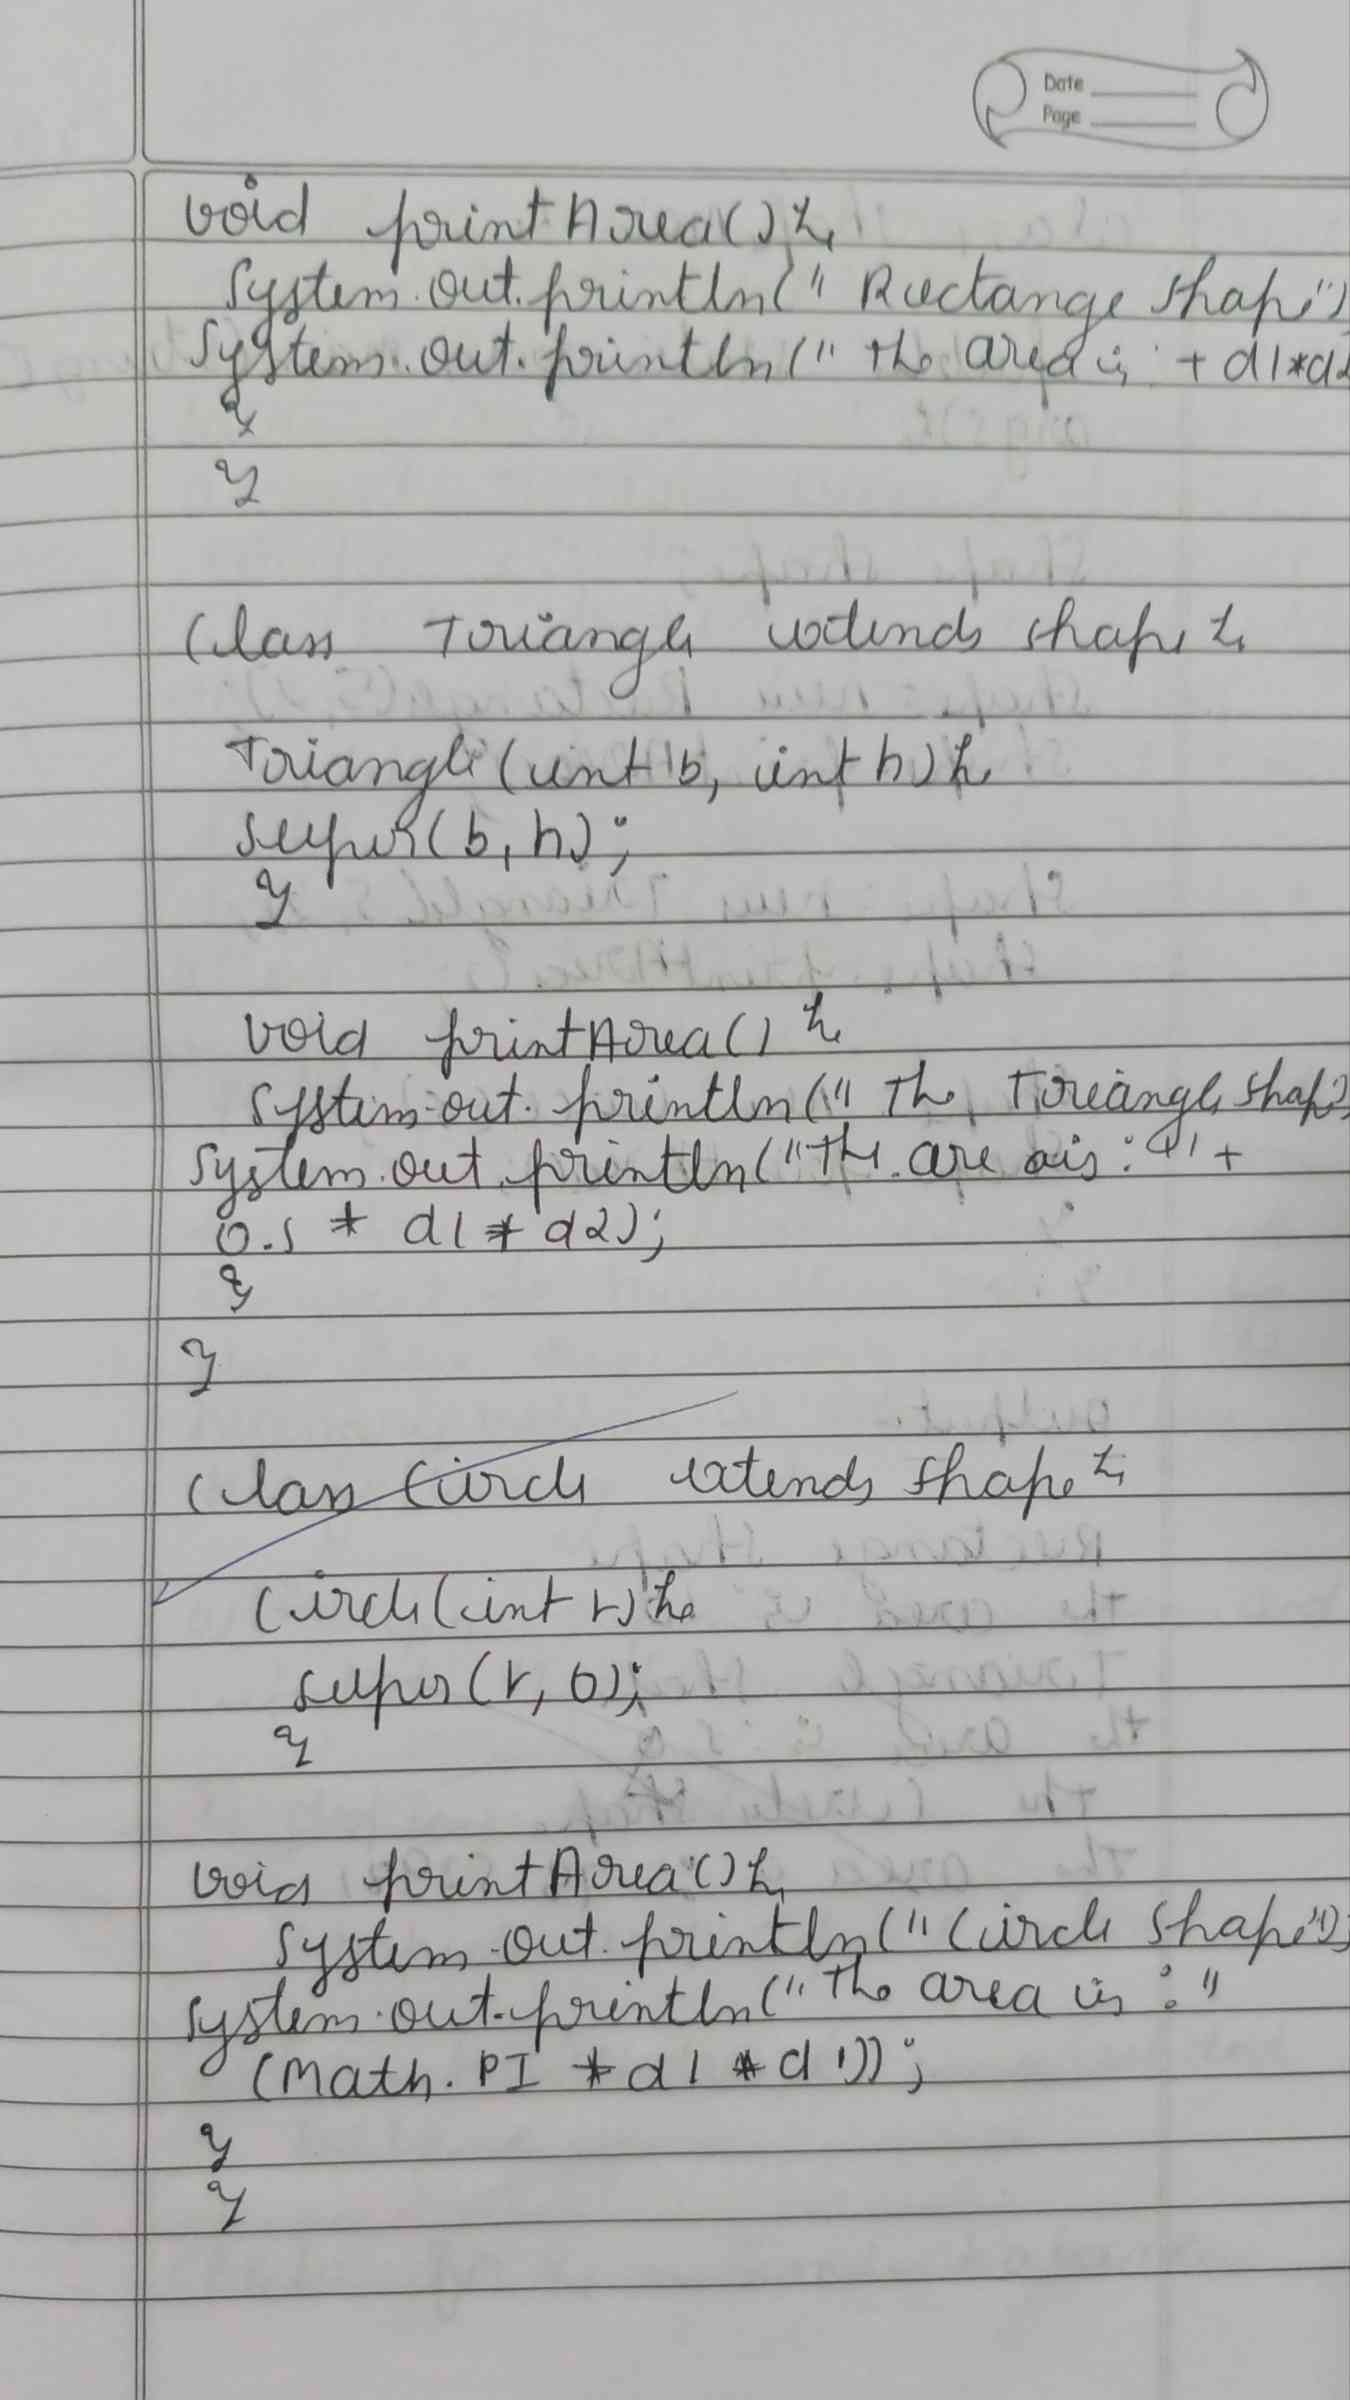 Date
Page
void printArea(){
System.out.println(" Rectange shape")
System.out.println(" the area is : + d1*d2
}
}
class Triangle extends shape {
Triangle (int b, int h) {
super(b, h);
}
void printArea() {
System.out. println(" The Triangle shape
System.out.println("The are ais : " +
0.5 * d1 * d2);
}
}
class Circle extends shape {
Circle (int r) {
super(r, 0);
}
void printArea() {
System.out.println(" Circle shape");
System.out.println(" The area is : "
(Math. PI * d1 * d1));
}
}